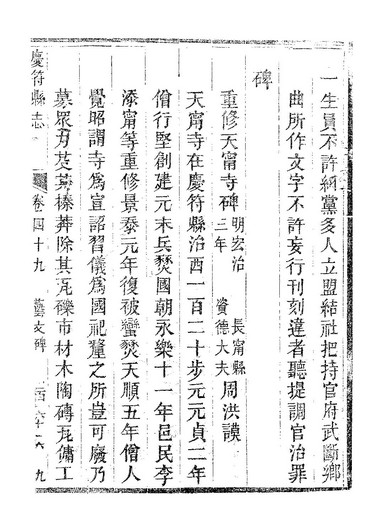 一生員不許糾黨多人立盟結社把持官府武斷鄉
曲所作文字不許妄行刊刻違者聽提調官治罪
碑
重修天甯寺碑 明宏治三年 長甯縣資德大夫 周洪謨
天甯寺在慶符縣治西一百二十步元元貞二年
僧行堅創建元末兵燹國朝永樂十一年邑民李
添甯等重修景泰元年復被蠻燹天順五年僧人
覺昭謂寺為宣詔習儀為國祀釐之所豈可廢乃
募眾芟荑蓁莽除其瓦礫市材木陶磚瓦傭工
慶符縣志 卷四十九 藝文碑 九